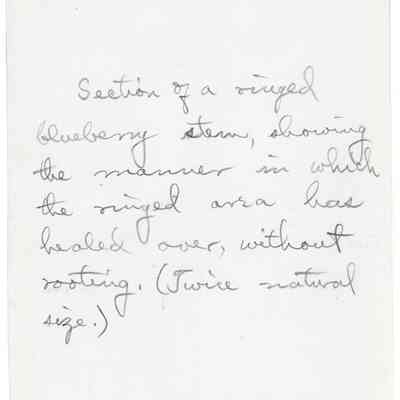 Section of a ringed
blueberry stem, showing
the manner in which
the ringed area has
healed over, without
rooting. (Twice natural
size.)